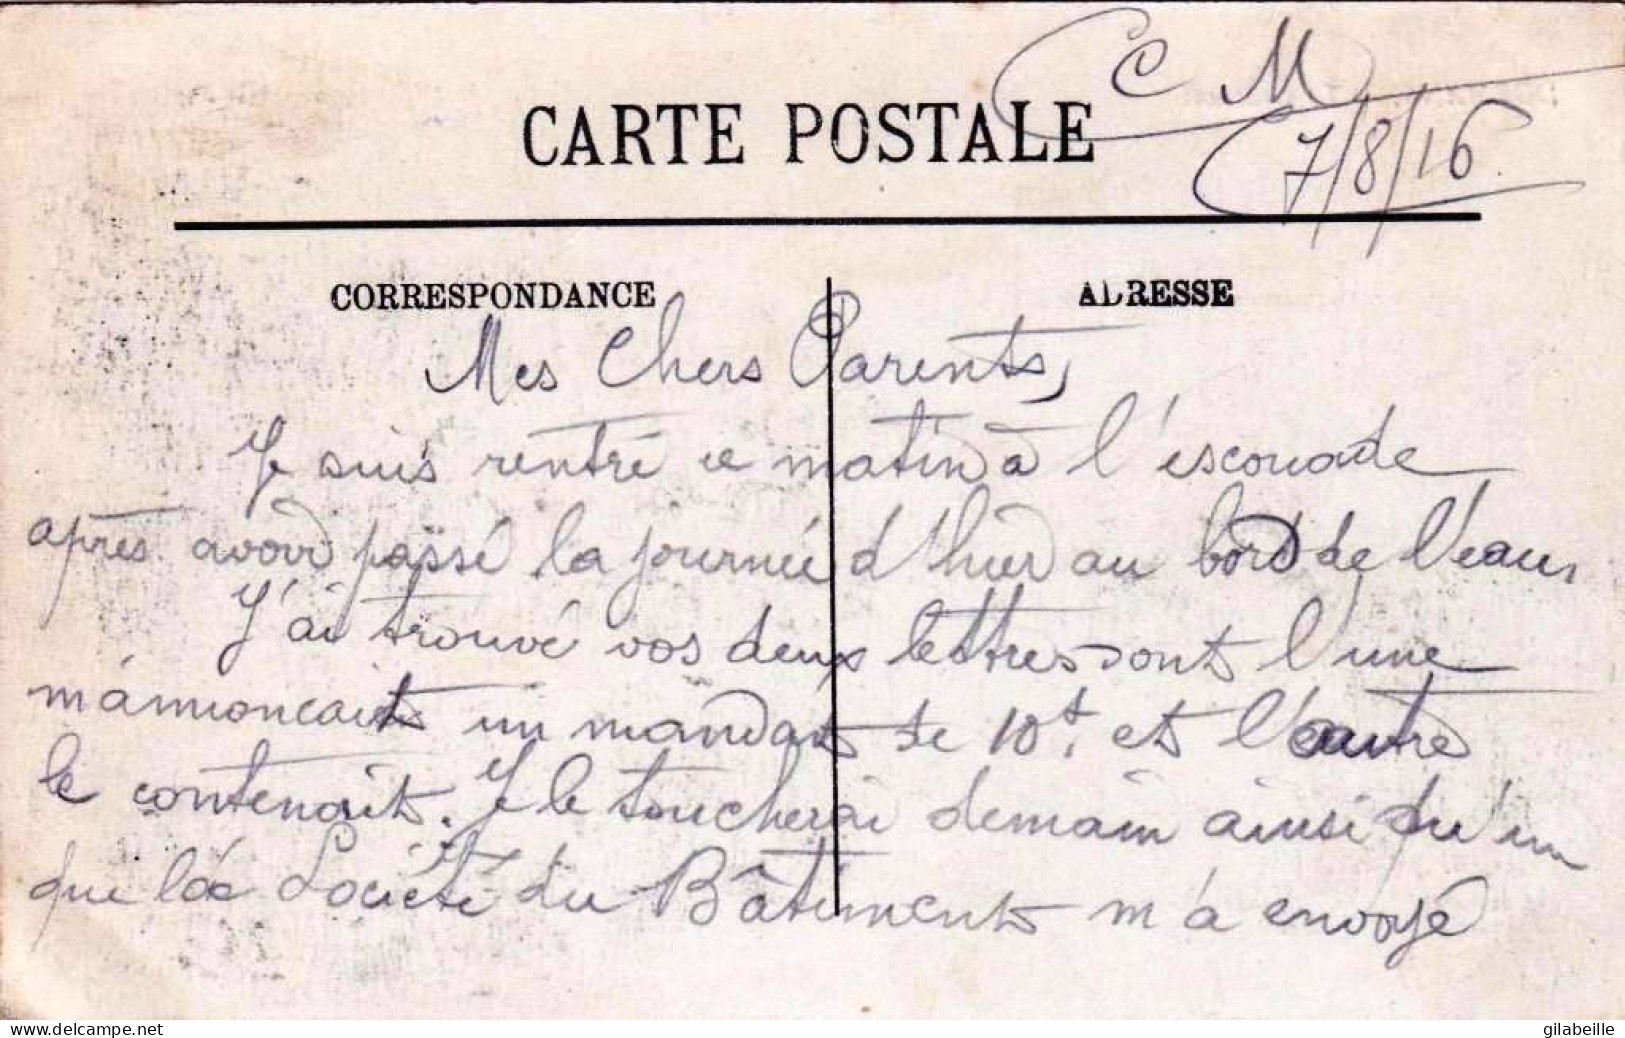 C M
CARTE POSTALE
7/8/16
CORRESPONDANCE
ADRESSE
Mes Chers Parents,
Je suis rentré ce matin à l'escouade
après avoir passé la journée d'hier au bord de l'eau,
J'ai trouvé vos deux lettres dont l'une
m'annoncait un mandat de 10f. et l'autre
le contenait. Je le toucherai demain ainsi qu'un
que la Société du Bâtiment m'a envoyé
delcampe.net
gilabeille